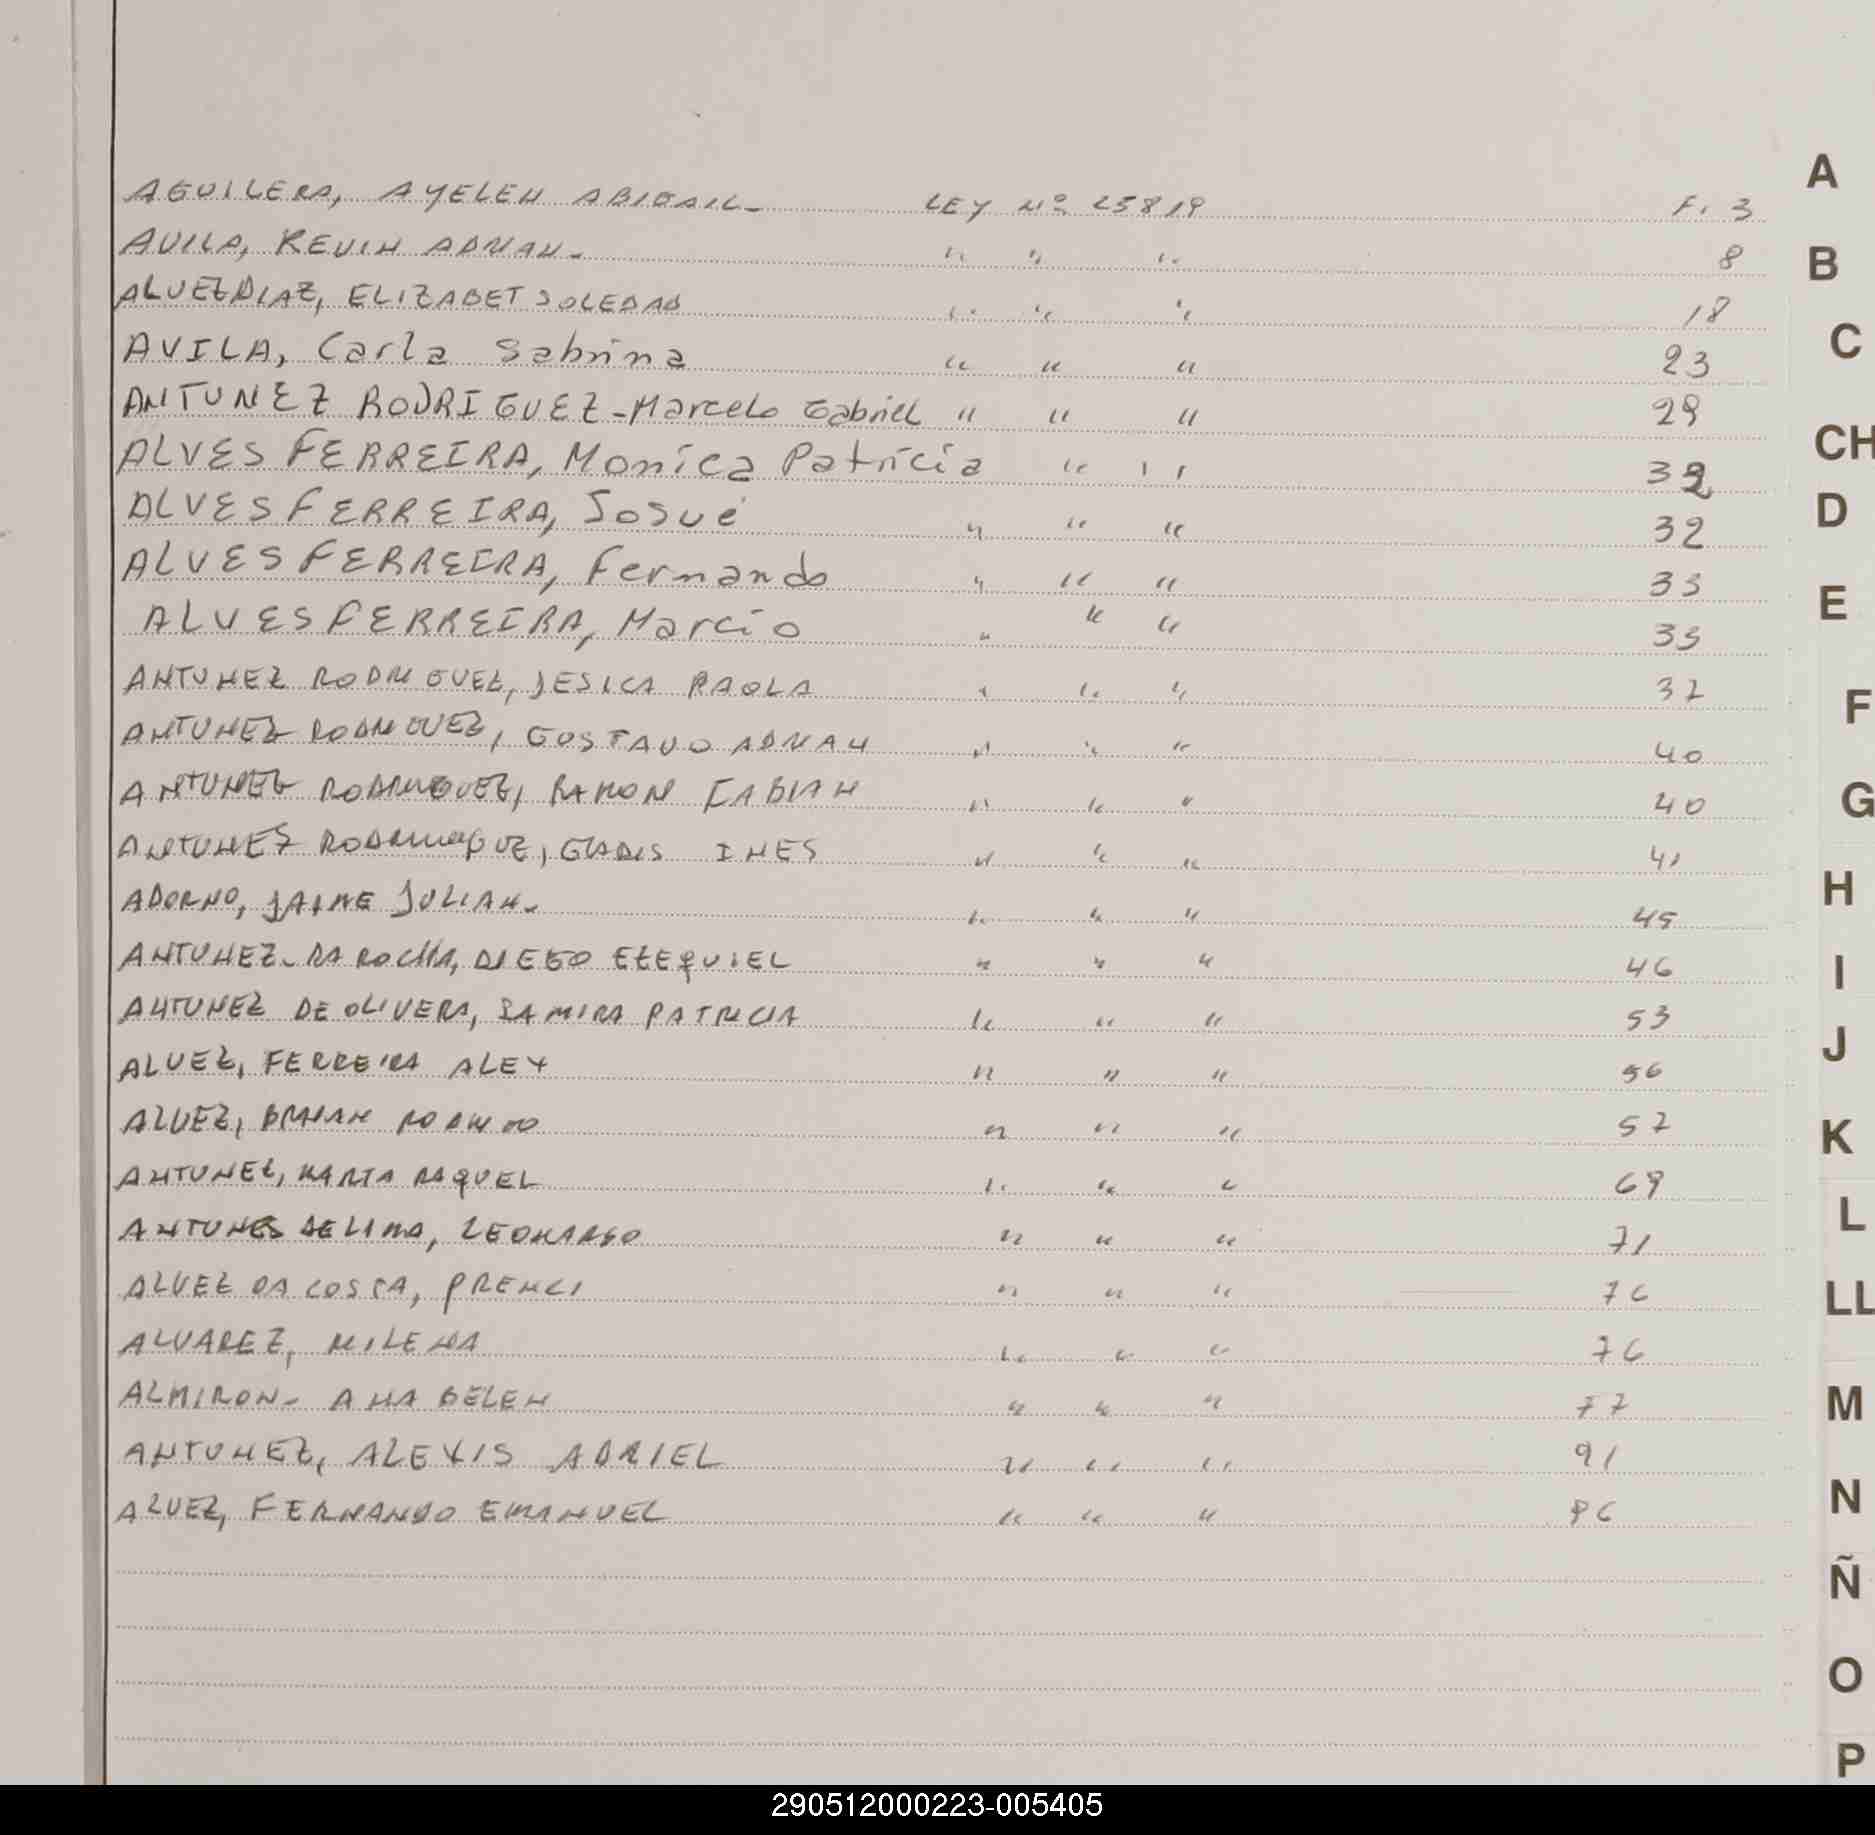 AGUILERA, AYELEN ABIGAIL- LEY Nº 25819 F. 3
AVILA, KEVIN ADRIAN- " " " 8
ALVEZ DIAZ, ELIZABET SOLEDAD " " " 18
AVILA, Carla Sabrina " " " 23
ANTUNEZ RODRIGUEZ-Marcelo Gabriel " " " 29
ALVES FERREIRA, Monica Patricia " " 32
ALVES FERREIRA, Josué " " " 32
ALVES FERREIRA, Fernando " " " 33
ALVES FERREIRA, Marcio " " " 33
ANTUNEZ RODRIGUEZ, JESICA PAOLA " " " 37
ANTUNEZ RODRIGUEZ, GUSTAVO ADRIAN " " " 40
ANTUNEZ RODRIGUEZ, RAMON FABIAN " " " 40
ANTUNEZ GLADIS INES " " " 41
ADORNO, JAIME JULIAN- " " " 45
ANTUNEZ-DA ROCHA, DIEGO EZEQUIEL " " " 46
ANTUNEZ DE OLIVERA, SAMIRA PATRICIA " " " 53
ALVEZ, FERREIRA ALEX " " " 56
ALVEZ, BRAIAN RODRIGO " " " 57
ANTUNEZ, MARTA RAQUEL " " " 69
ANTUNES DE LIMA, LEONARDO " " " 71
ALVEZ DA COSTA, " " " 76
ALVAREZ, MILENA " " " 76
ALMIRON- ANA BELEN " " " 77
ANTUNEZ, ALEXIS ADRIEL " " " 91
ALVEZ, FERNANDO EMANUEL " " "
A
B
C
CH
D
E
F
G
H
I
J
K
L
LL
M
N
Ñ
O
P
290512000223-005405